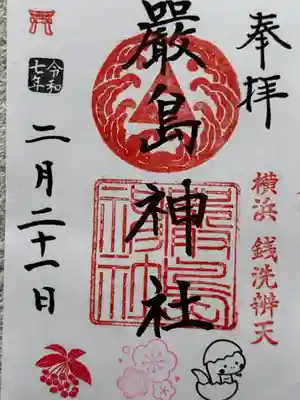 奉拝
横浜 銭洗辨天
嚴島神社
嚴島神社
令和七年
二月二十一日